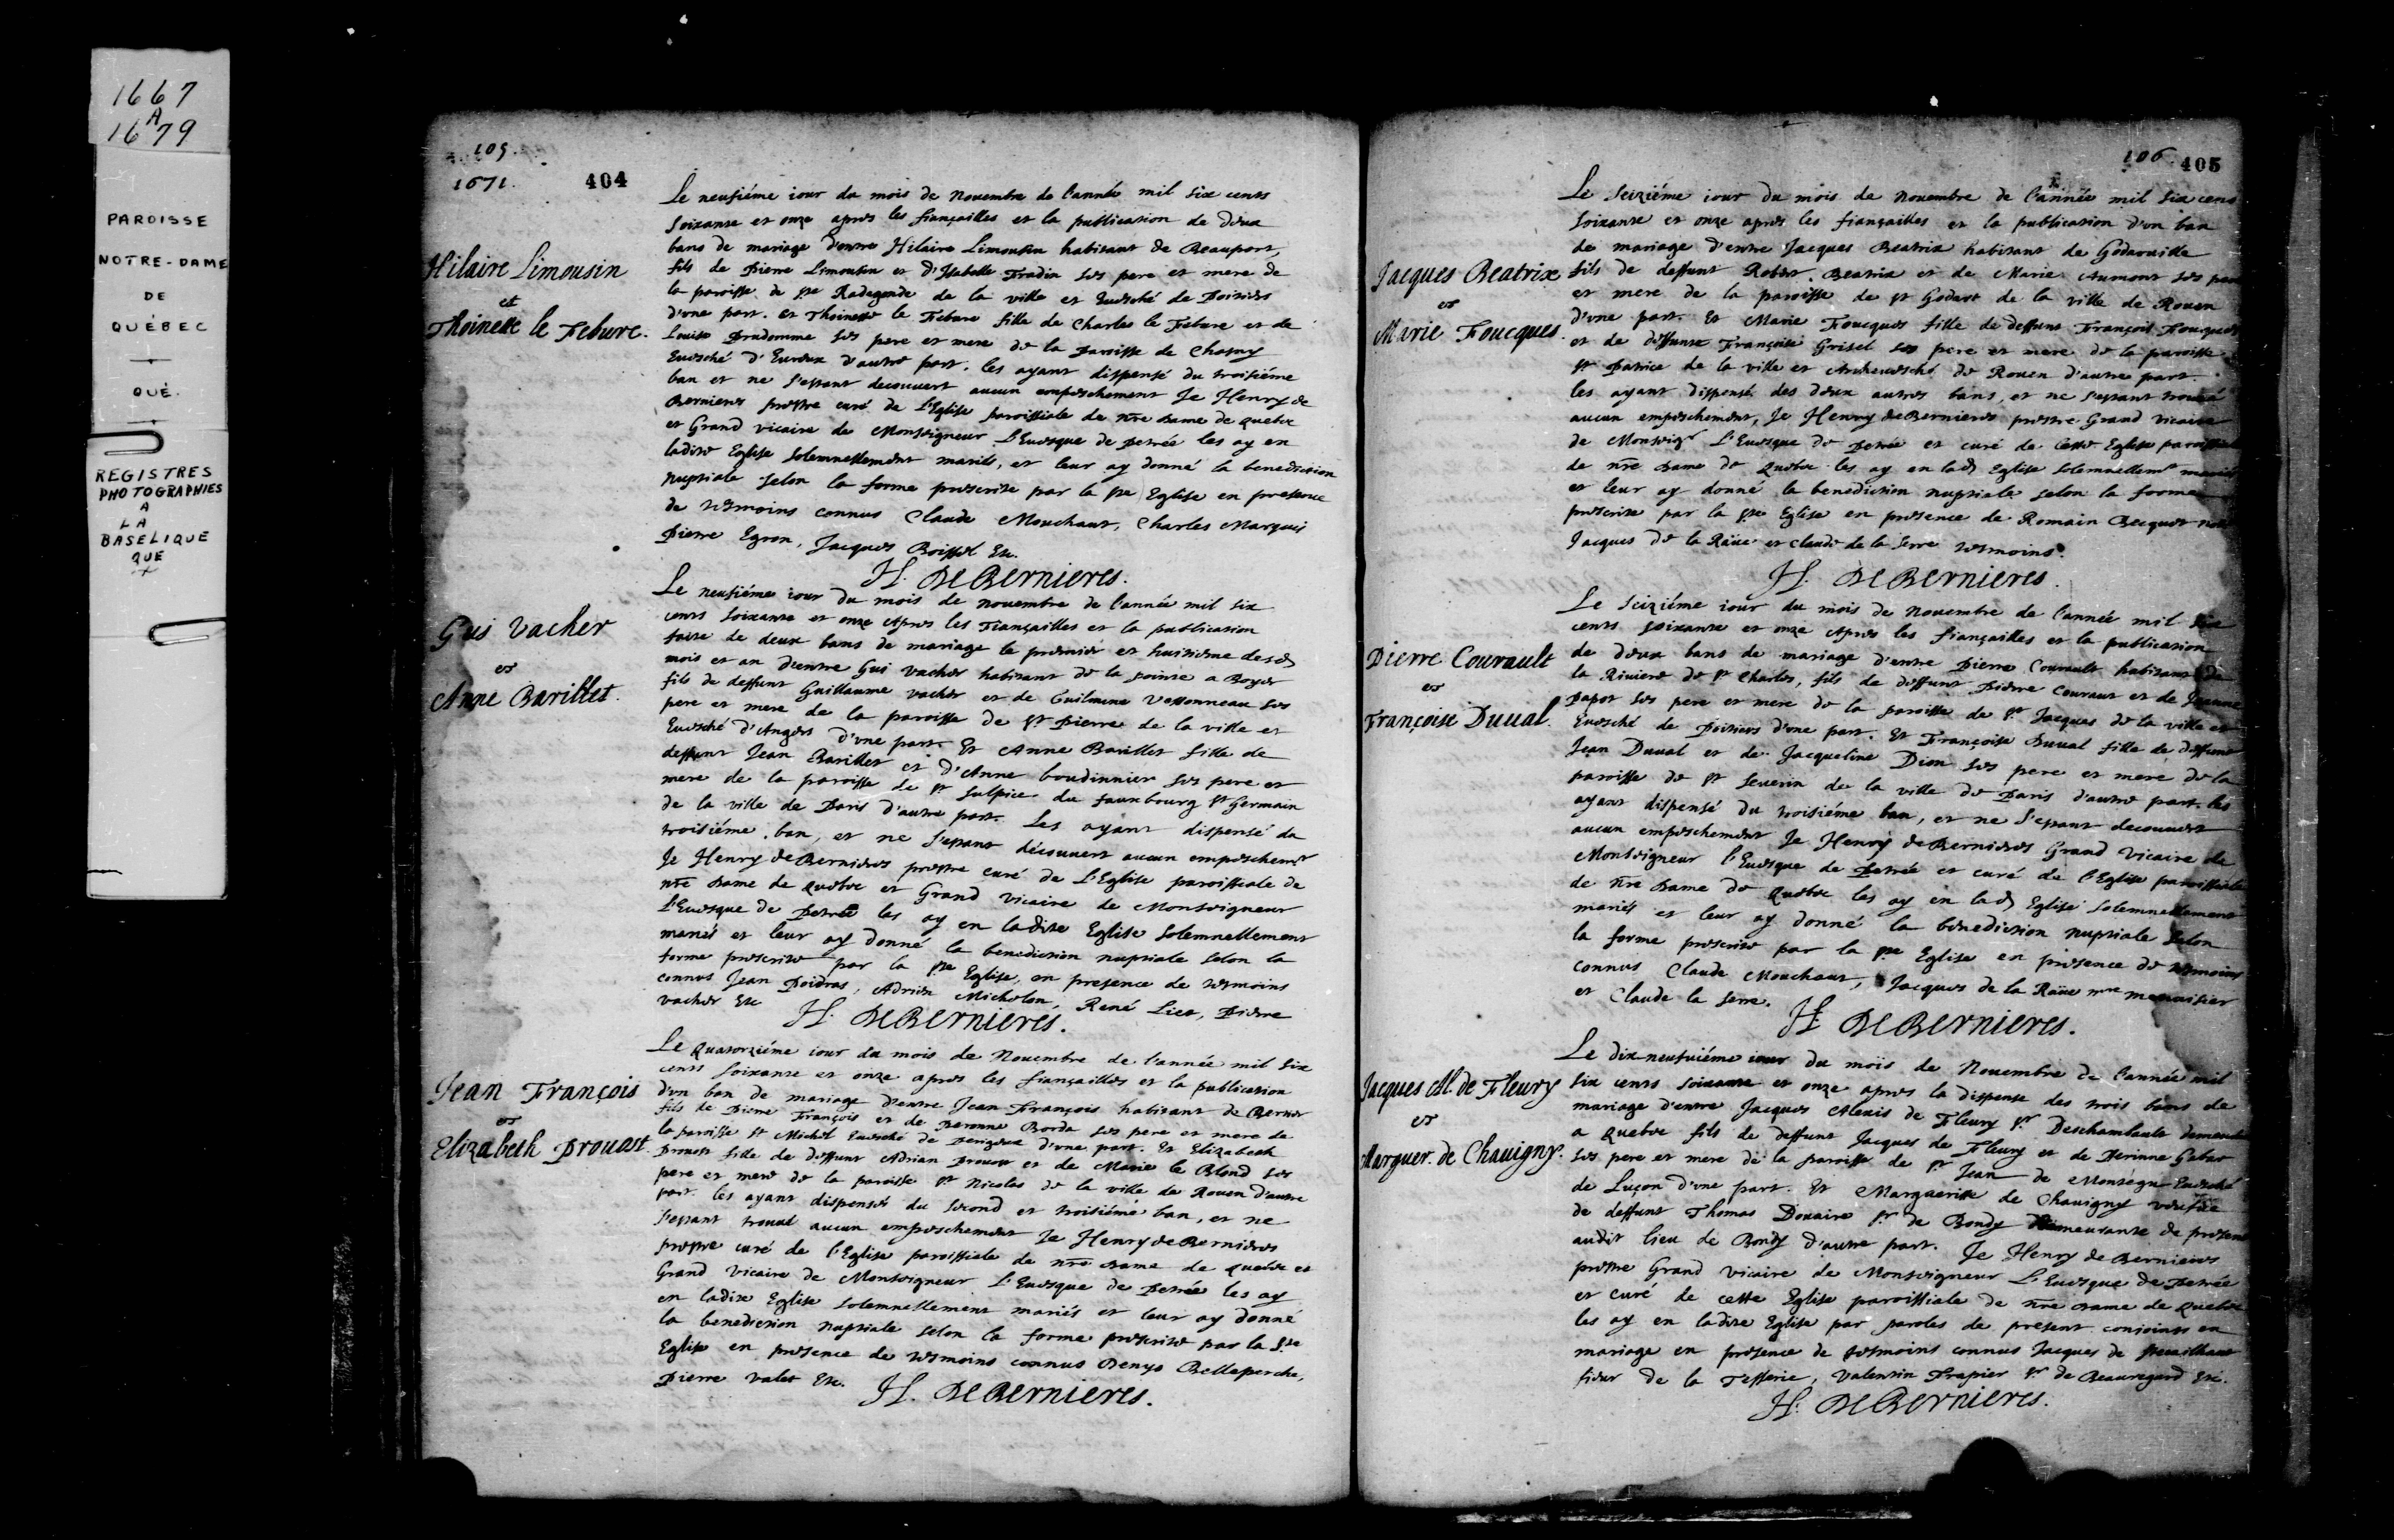 1667
A
1679
PAROISSE
NOTRE-DAME
DE
QUÉBEC
QUÉ.
REGISTRES
PHOTOGRAPHIES
A
LA
BASELIQUE
QUE
105.
1671.
404
Hilaire Limousin
et
Thoinette le Febure.
Le neufiéme iour du mois de Nouembre de l'année mil six cents
soixante et onze apres les fiançailles et la publication de deux
bans de mariage d'entre Hilaire Limousin habitant de Beauport,
fils de Pierre Limousin et d'Isabelle Fradin ses pere et mere de
la paroisse de ste Radegonde de la ville et Euesché de Poitiers
d'une part. et Thoinette le Febure fille de Charles le Febure et de
Louise Prudomme ses pere et mere de la Paroisse de Chagny
Euesché d'Eureux d'autre part. les ayant dispensé du troisiéme
ban et ne s'estant decouuert aucun empeschement Je Henry de
Bernieres prestre curé de l'Eglise paroissiale de nre Dame de Quebec
et Grand vicaire de Monseigneur L'Euesque de Petrée les ay en
ladite Eglise solemnellement mariés, et leur ay donné la benediction
nuptiale selon la forme prescrite par la ste Eglise en presence
de tesmoins connus Claude Mouchant, Charles Marquis
Pierre Egron, Jacques Boissel Etc.
H. DeBernieres.
Gui Vacher
et
Anne Barillet.
Le neufiéme iour du mois de nouembre de l'année mil six
cents soixante et onze Apres les Fiançailles et la publication
faite de deux bans de mariage le premier et huitieme desd
mois et an d'entre Gui vacher habitant de la pointe a Boyer
fils de deffunt Guillaume vacher et de Guilmine Vessonneau ses
pere et mere de la paroisse de st Pierre de la ville et
Euesché d'Angers d'une part. Et Anne Barillet fille de
deffunt Jean Barillet et d'Anne boudinnier ses pere et
mere de la paroisse de st Sulpice du fauxbourg st Germain
de la ville de Paris d'autre part. Les ayant dispensé du
troisiéme ban, et ne s'estant découuert aucun empeschemt
Je Henry de Bernieres prestre curé de L'Eglise paroissiale de
nre Dame de Quebec et Grand vicaire de Monseigneur
L'Euesque de Petrée les ay en ladite Eglise solemnellement
mariés et leur ay donné la benediction nuptiale selon la
forme prescrite par la ste Eglise, en presence de tesmoins
connus Jean Poidras, Adrien Michelon, René Liet, Pierre
vacher Etc
H. DeBernieres.
Jean François
et
Elizabeth Prouost.
Le Quatorziéme iour du mois de Nouembre de l'année mil six
cents soixante et onze apres les fiançailles et la publication
d'un ban de mariage d'entre Jean François habitant de Bernier
fils de Pierre François et de Peronne Borda ses pere et mere de
la paroisse st Michel Euesché de Perigueux d'une part. Et Elizabeth
Prouost fille de deffunt Adrian Prouost et de Marie le Blond ses
pere et mere de la paroisse st Nicolas de la ville de Rouen d'autre
part. les ayant dispensés du second et troisiéme ban, et ne
s'estant trouué aucun empeschement Je Henry de Bernieres
prestre curé de l'Eglise paroissiale de nre Dame de Quebec et
Grand vicaire de Monseigneur L'Euesque de Petrée les ay
en ladite Eglise solemnellement mariés et leur ay donné
la benediction nuptiale selon la forme prescrite par la ste
Eglise en presence de tesmoins connus Denys Belleperche,
Pierre valet Etc.
H. DeBernieres.
106
405
Jacques Beatrix
et
Marie Foucques.
Le Seiziéme iour du mois de Nouembre de l'année mil six cens
soixante et onze apres les fiançailles et la publication d'un ban
de mariage d'entre Jacques Beatrix habitant de Godarville
fils de deffunt Robert Beatrix et de Marie Aumont ses pere
et mere de la paroisse de st Godart de la ville de Rouen
d'une part. Et Marie Foucques fille de deffunt François Foucques
et de deffunte Françoise Grisel ses pere et mere de la paroisse
st Patrice de la ville et Archeuesché de Rouen d'autre part.
les ayant dispensé des deux autres bans, et ne s'estant trouué
aucun empeschement, Je Henry de Bernieres prestre Grand vicaire
de Monseigr L'Euesque de Petrée et curé de cette Eglise paroissiale
de nre Dame de Quebec les ay en lad Eglise solemnellemt mariés
et leur ay donné la benediction nuptiale selon la forme
prescrite par la ste Eglise en presence de Romain Becquet
Jacques de la Raüe et Claude de la Serre tesmoins.
H. DeBernieres.
Pierre Courault
et
Françoise Duual.
Le Seiziéme iour du mois de Nouembre de l'année mil six
cents soixante et onze Apres les fiançailles et la publication
de deux bans de mariage d'entre Pierre Courault habitant de
la Riuiere de st Charles, fils de deffunt Pierre Couraut et de Jeanne
Papot ses pere et mere de la paroisse de st Jacques de la ville et
Euesché de Poitiers d'une part. Et Françoise Duual fille de deffunt
Jean Duual et de Jacqueline Dion ses pere et mere de la
paroisse de st Seuerin de la ville de Paris d'autre part. les
ayant dispensé du troisiéme ban, et ne s'estant decouuert
aucun empeschement Je Henry de Bernieres Grand Vicaire de
Monseigneur l'Euesque de Petrée et curé de l'Eglise paroissiale
de nre Dame de Quebec les ay en lad Eglise solemnellement
mariés et leur ay donné la benediction nuptiale selon
la forme prescrite par la ste Eglise en presence de tesmoins
connus Claude Mouchant, Jacques de la Raüe mre menuisier
et Claude la Serre.
H. DeBernieres.
Jacques Al. de Fleury
et
Marguer. de Chauigny.
Le dix-neufuiéme iour du mois de Nouembre de l'année mil
six cents soixante et onze apres la dispense des trois bans de
mariage d'entre Jacques Alexis de Fleury sr Deschambault
a Quebec fils de deffunt Jacques de Fleury et de Perinne Gabar
ses pere et mere de la paroisse de st Jean de Montégu Euesché
de Luçon d'une part. Et Marguerite de Chauigny veufue
de deffunt Thomas Douaire sr de Bondy demeurante de present
audit lieu de Bondy d'autre part. Je Henry de Bernieres
prestre Grand Vicaire de Monseigneur L'Euesque de Petrée
et curé de cette Eglise paroissiale de nre Dame de Quebec
les ay en ladite Eglise par paroles de present conioints en
mariage en presence de tesmoins connus Jacques de
sieur de la Tesserie, Valentin Frapier sr de Beauregard Etc.
H. DeBernieres.